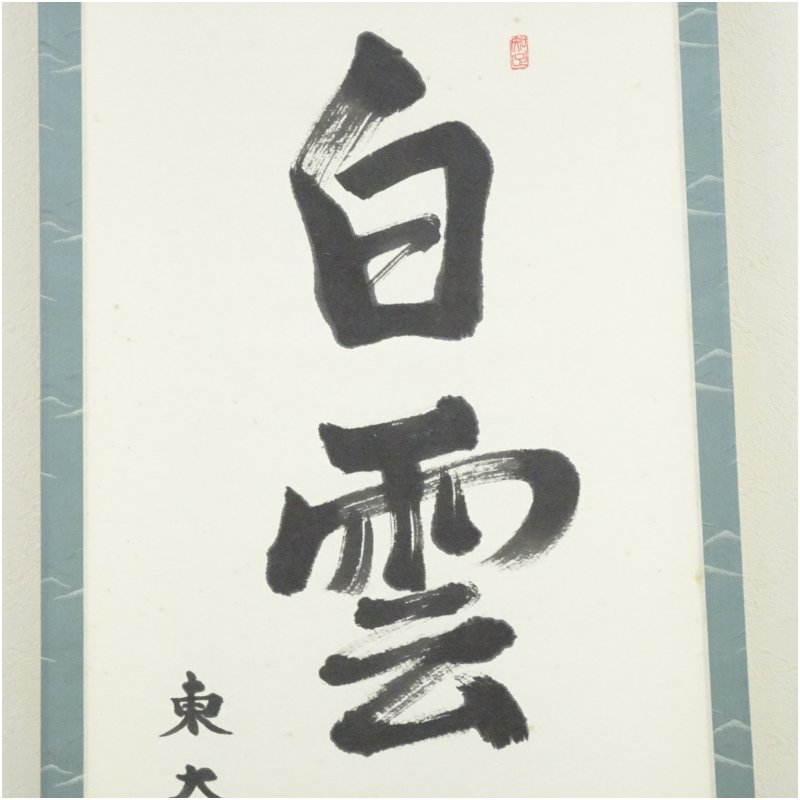 白雲
東大